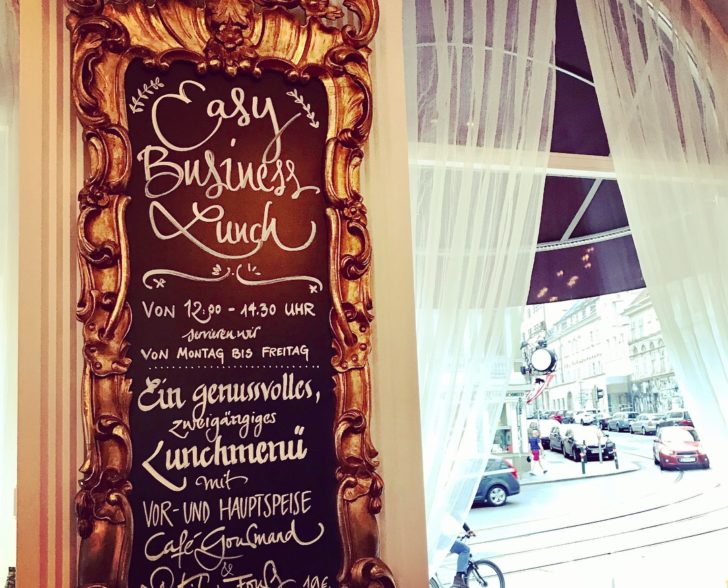 Easy
Business
Lunch
VON 12:00 - 14.30 UHR
servieren wir
VON MONTAG BIS FREITAG
Ein genussvolles,
zweigängiges
Lunchmenü
mit
VOR- UND HAUPTSPEISE
Café Gourmand
&
19€